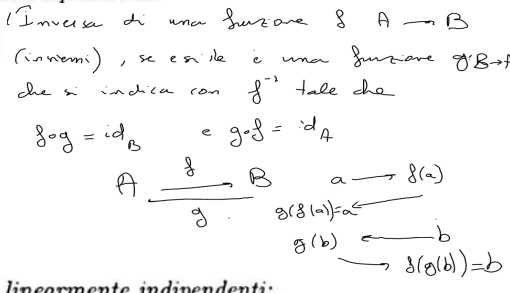 L'Inversa di una funzione f A → B
(insiemi), se esiste è una funzione g:B→A
che si indica con f⁻¹ tale che
f∘g = id_B e g∘f = id_A
A f→ B a → f(a)
g g(f(a))=a ←
g(b) ← b
→ f(g(b))=b
linearmente indipendenti: